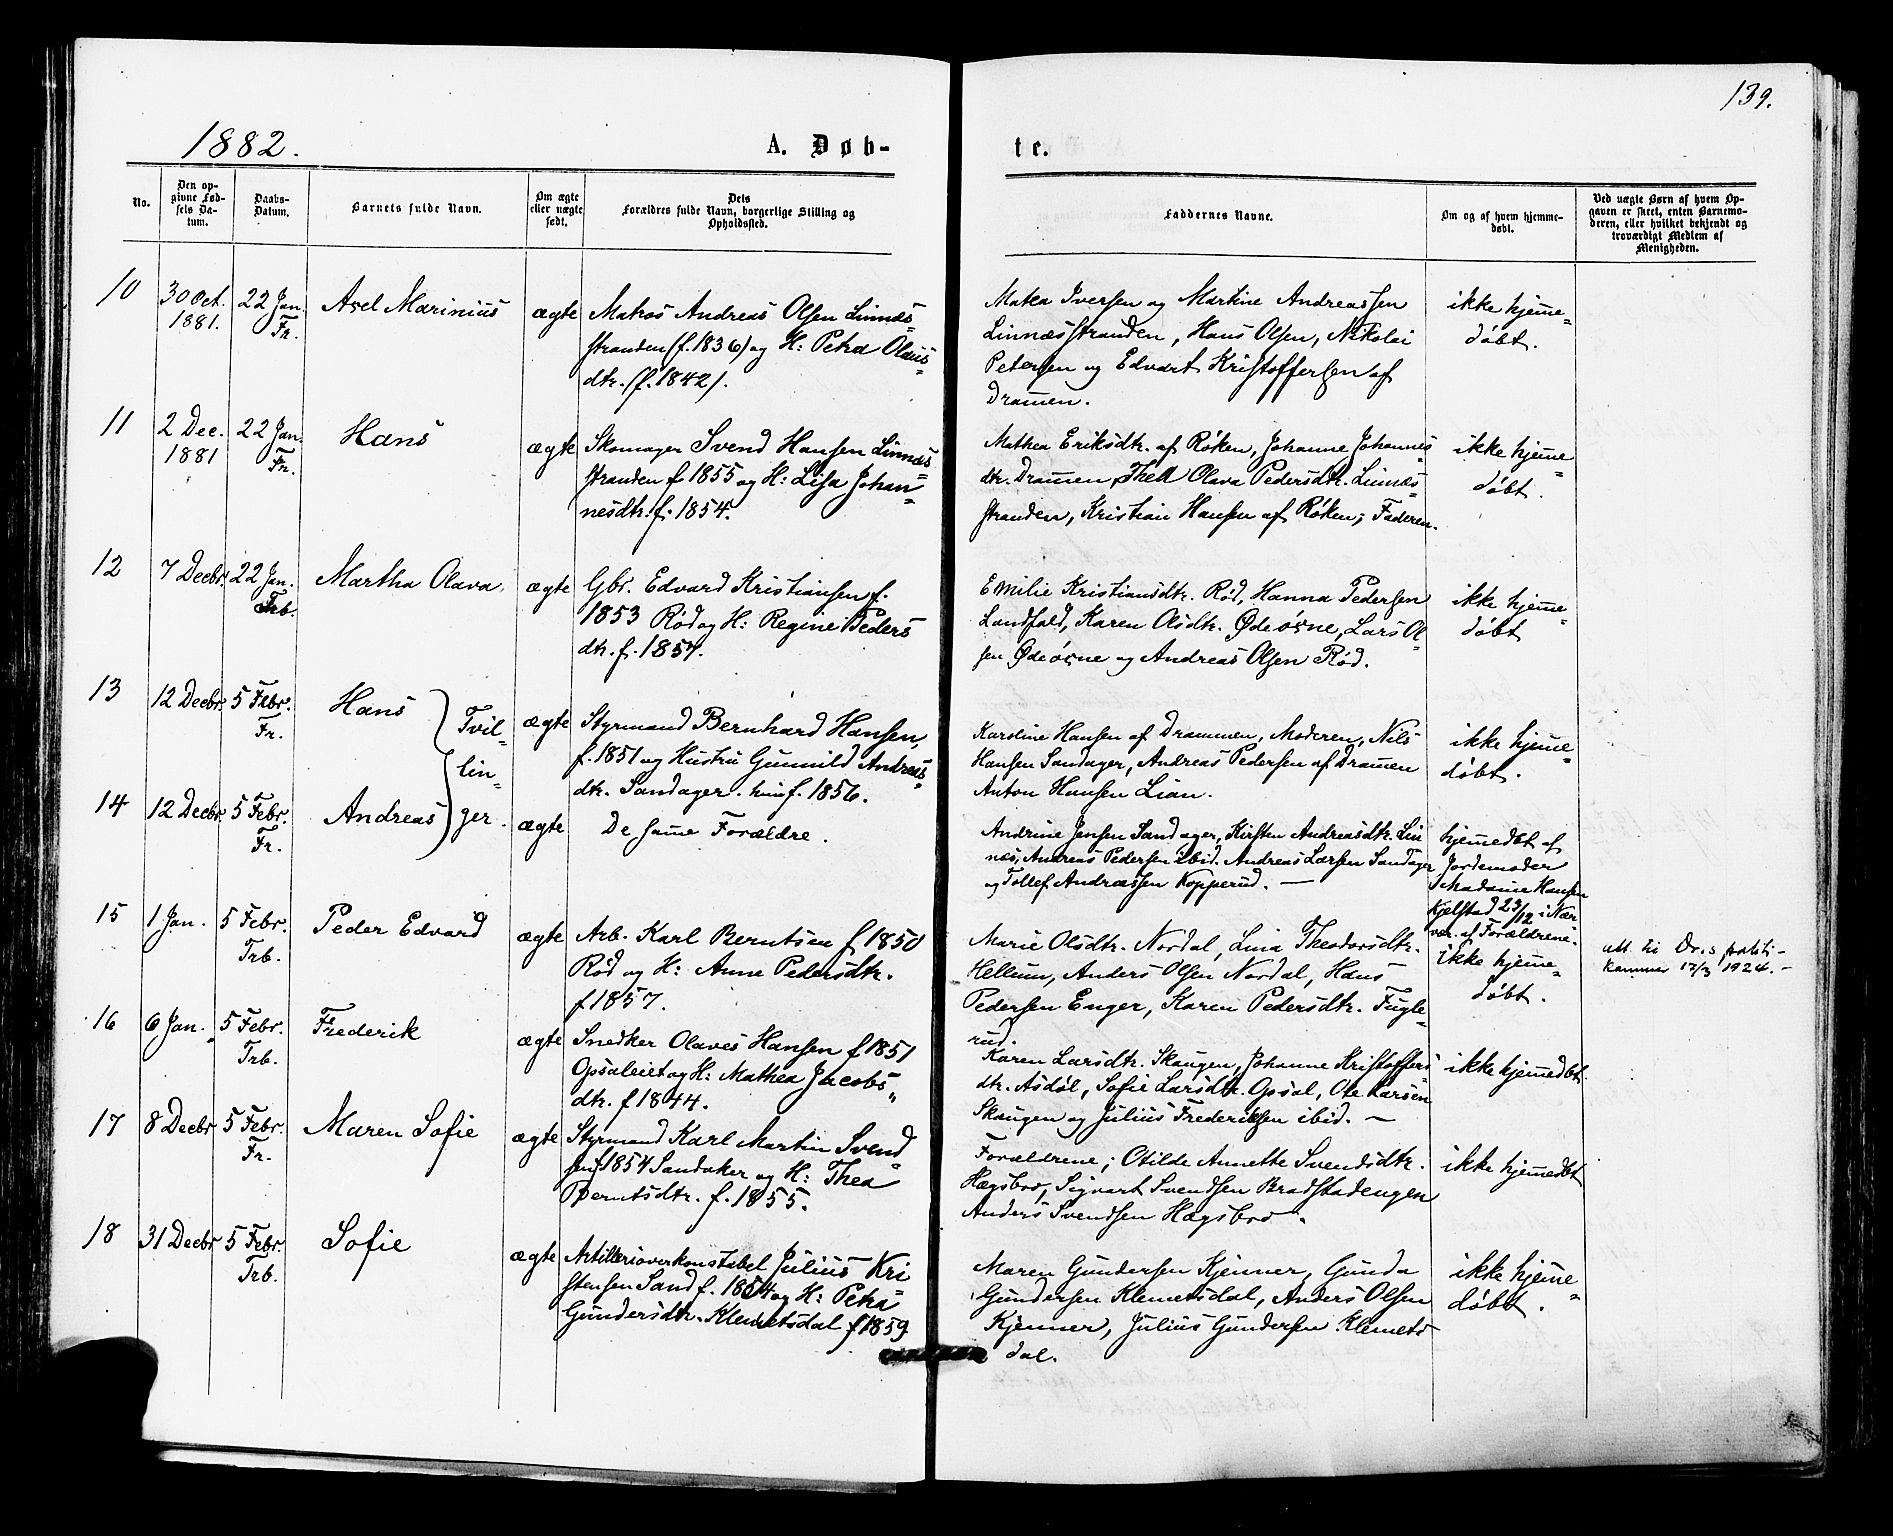 139.
1882.
A. Døb-
te.
No.
Den op-
givne Fød-
sels Da-
tum.
Daabs-
Datum.
Barnets fulde Navn.
Om ægte
eller uægte
født.
Dets
Forældres fulde Navn, borgerlige Stilling og
Opholdssted.
Faddernes Navne.
Om og af hvem hjemme-
døbt.
Ved uægte Børn af hvem Op-
gaven er skeet, enten Barnemo-
deren, eller hvilket bekjendt og
troværdigt Medlem af
Menigheden.
10
30 Oct.
1881.
22 Jan.
Fr.
Axel Marinius
ægte
Matros Andreas Olsen Linnæs-
stranden (f. 1836) og H: Petra Olaus-
dtr. (f. 1842).
Maka Iversen og Martine Andreassen
Linnæsstranden, Hans Olsen, Nikolai
Petersen og Edvart Kristoffersen af
Dramen.
ikke hjeme-
døbt.
11
2 Dec.
1881
22 Jan.
Fr.
Hans
ægte
Skomager Svend Hansen Linnæs-
stranden f. 1855 og H: Lisa Johan-
nesdtr. f. 1854.
Mathea Eriksdtr. af Røken, Johanne Johannes-
dtr. Dramen, Thea Olava Pedersdtr. Linnæs-
stranden, Kristian Hansen af Røken; Faderen.
ikke hjeme-
døbt.
12
7 Decbr.
22 Jan.
Trb.
Martha Olava
ægte
Gbr. Edvard Kristiansen f.
1853 Rød og H: Regine Peders
dtr. f. 1857.
Emilie Kristiansdtr. Rød, Hanna Pedersen
Landfald, Karen Olsdtr. Ødeørne, Lars Ol-
sen Ødeørne og Andreas Olsen Rød.
ikke hjeme-
døbt
13
12 Decbr.
5 Febr.
Fr.
Hans
Tvil-
lin-
ger.
ægte
Styrmand Bernhard Hansen,
f. 1851 og Hustru Gunnild Andreas-
dtr. Sandager. hun f. 1856.
Karoline Hansen af Drammen, Moderen, Nils
Hansen Sandager, Andreas Pedersen af Dramen
Anton Hansen Lian.
ikke hjeme-
døbt.
14
12 Decbr.
5 Febr.
Fr.
Andreas
ægte
De same Forældre.
Andrine Jensen Sandager, Kirsten Andreasdtr. Lin-
næs, Andreas Pedersen ibid. Andreas Larsen Sandager
og Tollef Andreassen Kopperud. —
hjemedbt af
Jordemoder
Madame Hansen
Kjelstad 23/12 i Nær-
vær. af Forældrene.
15
1 Jan.
5 Febr.
Trb.
Peder Edvard
ægte
Arb. Karl Berntsen f 1850
Rød og H: Anne Pedersdtr.
f 1857.
Marie Olsdtr. Nordal, Lina Theodorsdtr.
Hellum, Anders Olsen Nordal, Hans
Pedersen Enger, Karen Pedersdtr. Fugle-
rud.
ikke hjeme-
døbt.
att. til Dr.s politi-
kammer 17/3 1924. -
16
6 Jan.
5 Febr.
Trb.
Frederik
ægte
Snedker Olaves Hansen f 1851
Opsaleiet og H: Mathea Jacobs-
dtr. f 1844.
Karen Larsdtr. Skaugen, Johanne Kristoffers-
dtr. Asdøl, Sofie Larsdtr. Opsal, Ole Larsen
Skaugen og Julius Frederiksen ibid. —
ikke hjemedbt
17
8 Decbr
5 Febr.
Fr.
Maren Sofie
ægte
Styrmand Karl Martin Svend-
sen f 1854 Sandaker og H: Thea
Berntsdtr. f. 1855.
Forældrene; Otilde Annette Svendsdtr.
Hægsbro, Sigvart Svendsen Bradstadengen
Anders Svendsen Hægsbro.
ikke hjemedbt
18
31 Decbr
5 Febr.
Trb.
Sofie
ægte
Artillerioverkonstabel Julius Kri-
stensen Sand f. 1854 og H: Petra
Gundersdtr. Klemetsdal f 1859
Maren Gundersen Kjenner, Gunda
Gundersen Klemetsdal, Anders Olsen
Kjenner, Julius Gundersen Klemets
dal.
ikke hjeme-
døbt.